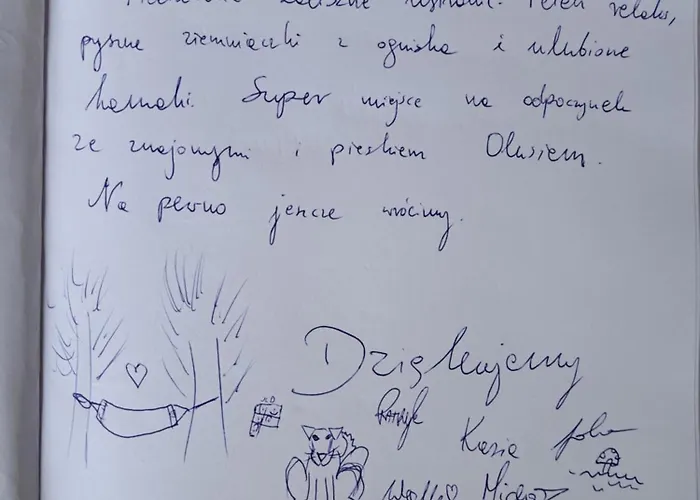 relaks,
pyszne ziemniaczki z ogniska i ulubione
hamaki. Super miejsce na odpoczynek
ze znajomymi i pieskiem Olusiem.
Na pewno jeszcze wrócimy.
Dziękujemy
Patryk
Kasia